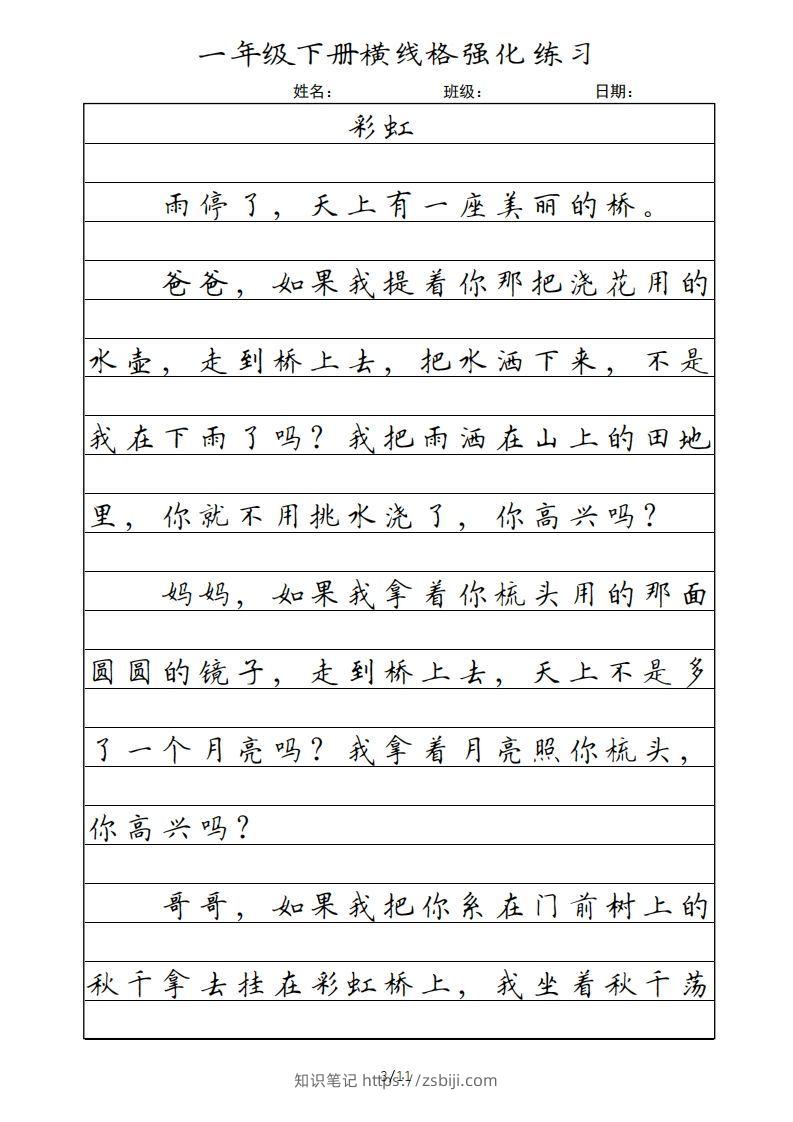 一年级下册横线格强化练习
姓名： 班级： 日期：
彩虹
雨停了，天上有一座美丽的桥。
爸爸，如果我提着你那把浇花用的
水壶，走到桥上去，把水洒下来，不是
我在下雨了吗？我把雨洒在山上的田地
里，你就不用挑水浇了，你高兴吗？
妈妈，如果我拿着你梳头用的那面
圆圆的镜子，走到桥上去，天上不是多
了一个月亮吗？我拿着月亮照你梳头，
你高兴吗？
哥哥，如果我把你系在门前树上的
秋千拿去挂在彩虹桥上，我坐着秋千荡
3/11
知识笔记 https://zsbiji.com